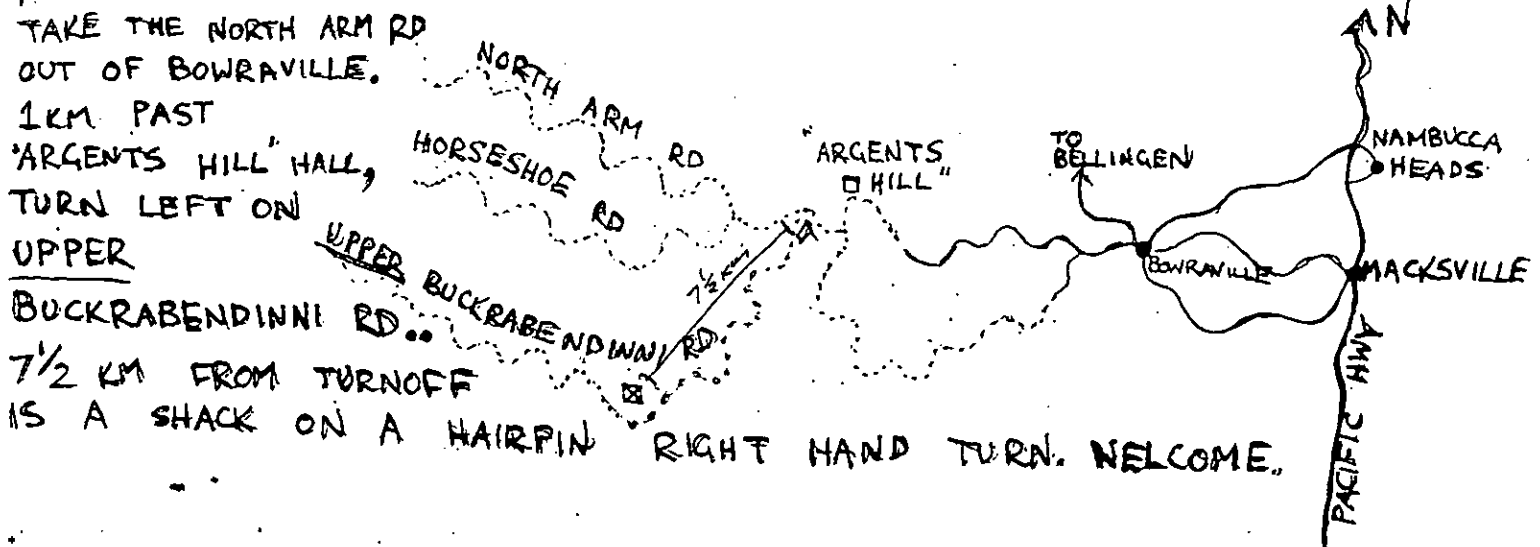 TAKE THE NORTH ARM RD
OUT OF BOWRAVILLE.
1KM PAST
"ARGENTS HILL" HALL,
TURN LEFT ON
UPPER
BUCKRABENDINNI RD..
7½ KM FROM TURNOFF
IS A SHACK ON A HAIRPIN RIGHT HAND TURN. NELCOME.
NORTH ARM RD
HORSESHOE RD
UPPER BUCKRABENDINNI RD
7½ KM
"ARGENTS
HILL"
TO
BELLINGEN
BOWRAVILLE
N
NAMBUCCA
HEADS
MACKSVILLE
PACIFIC HWY